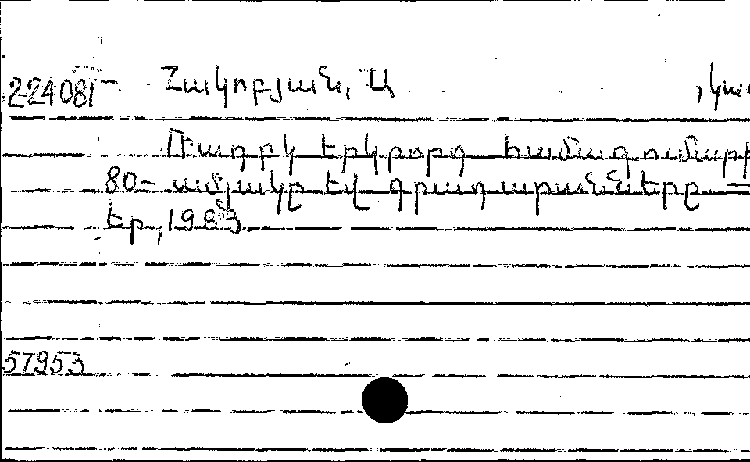 224081- Հակոբյան, Ա , կա
ՌՍԴԲԿ երկրորդ համագումարի
80-ամյակը եվ գրադարանները —
Եր, 1983
57953